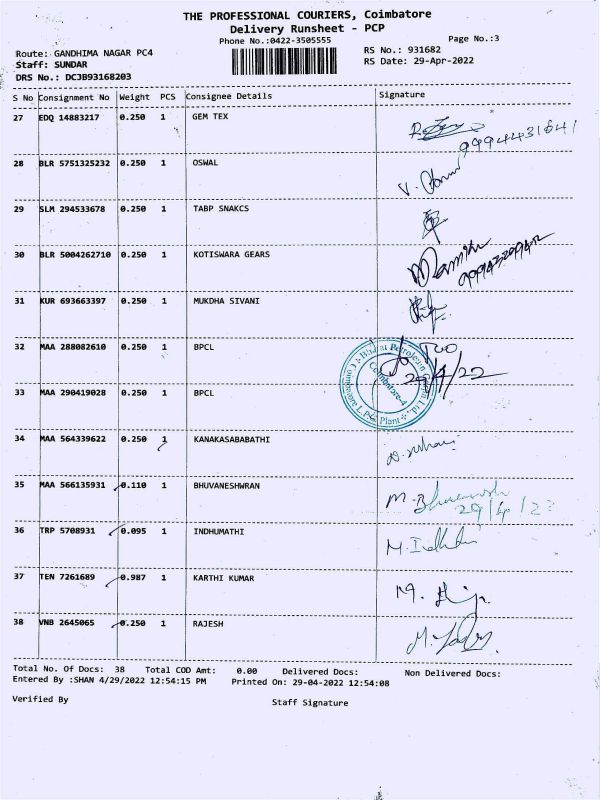 THE PROFESSIONAL COURIERS, Coimbatore
Delivery Runsheet - PCP
Phone No.:0422-3505555
Page No.:3
Route: GANDHIMA NAGAR PC4
RS No.: 931682
Staff: SUNDAR
RS Date: 29-Apr-2022
DRS No.: DCJB93168203
S No Consignment No Weight PCS Consignee Details Signature
27 EDQ 14883217 0.250 1 GEM TEX
28 BLR 5751325232 0.250 1 OSWAL
29 SLM 294533678 0.250 1 TABP SNAKCS
30 BLR 5004262710 0.250 1 KOTISWARA GEARS
31 KUR 693663397 0.250 1 MUKDHA SIVANI
32 MAA 288082610 0.250 1 BPCL
29/4/22
33 MAA 290419028 0.250 1 BPCL
34 MAA 564339622 0.250 1 KANAKASABABATHI
35 MAA 566135931 0.110 1 BHUVANESHWRAN
29/4/22
36 TRP 5708931 0.095 1 INDHUMATHI
37 TEN 7261689 0.987 1 KARTHI KUMAR
38 VNB 2645065 0.250 1 RAJESH
Total No. Of Docs: 38 Total COD Amt: 0.00 Delivered Docs: Non Delivered Docs:
Entered By :SHAN 4/29/2022 12:54:15 PM Printed On: 29-04-2022 12:54:08
Verified By
Staff Signature